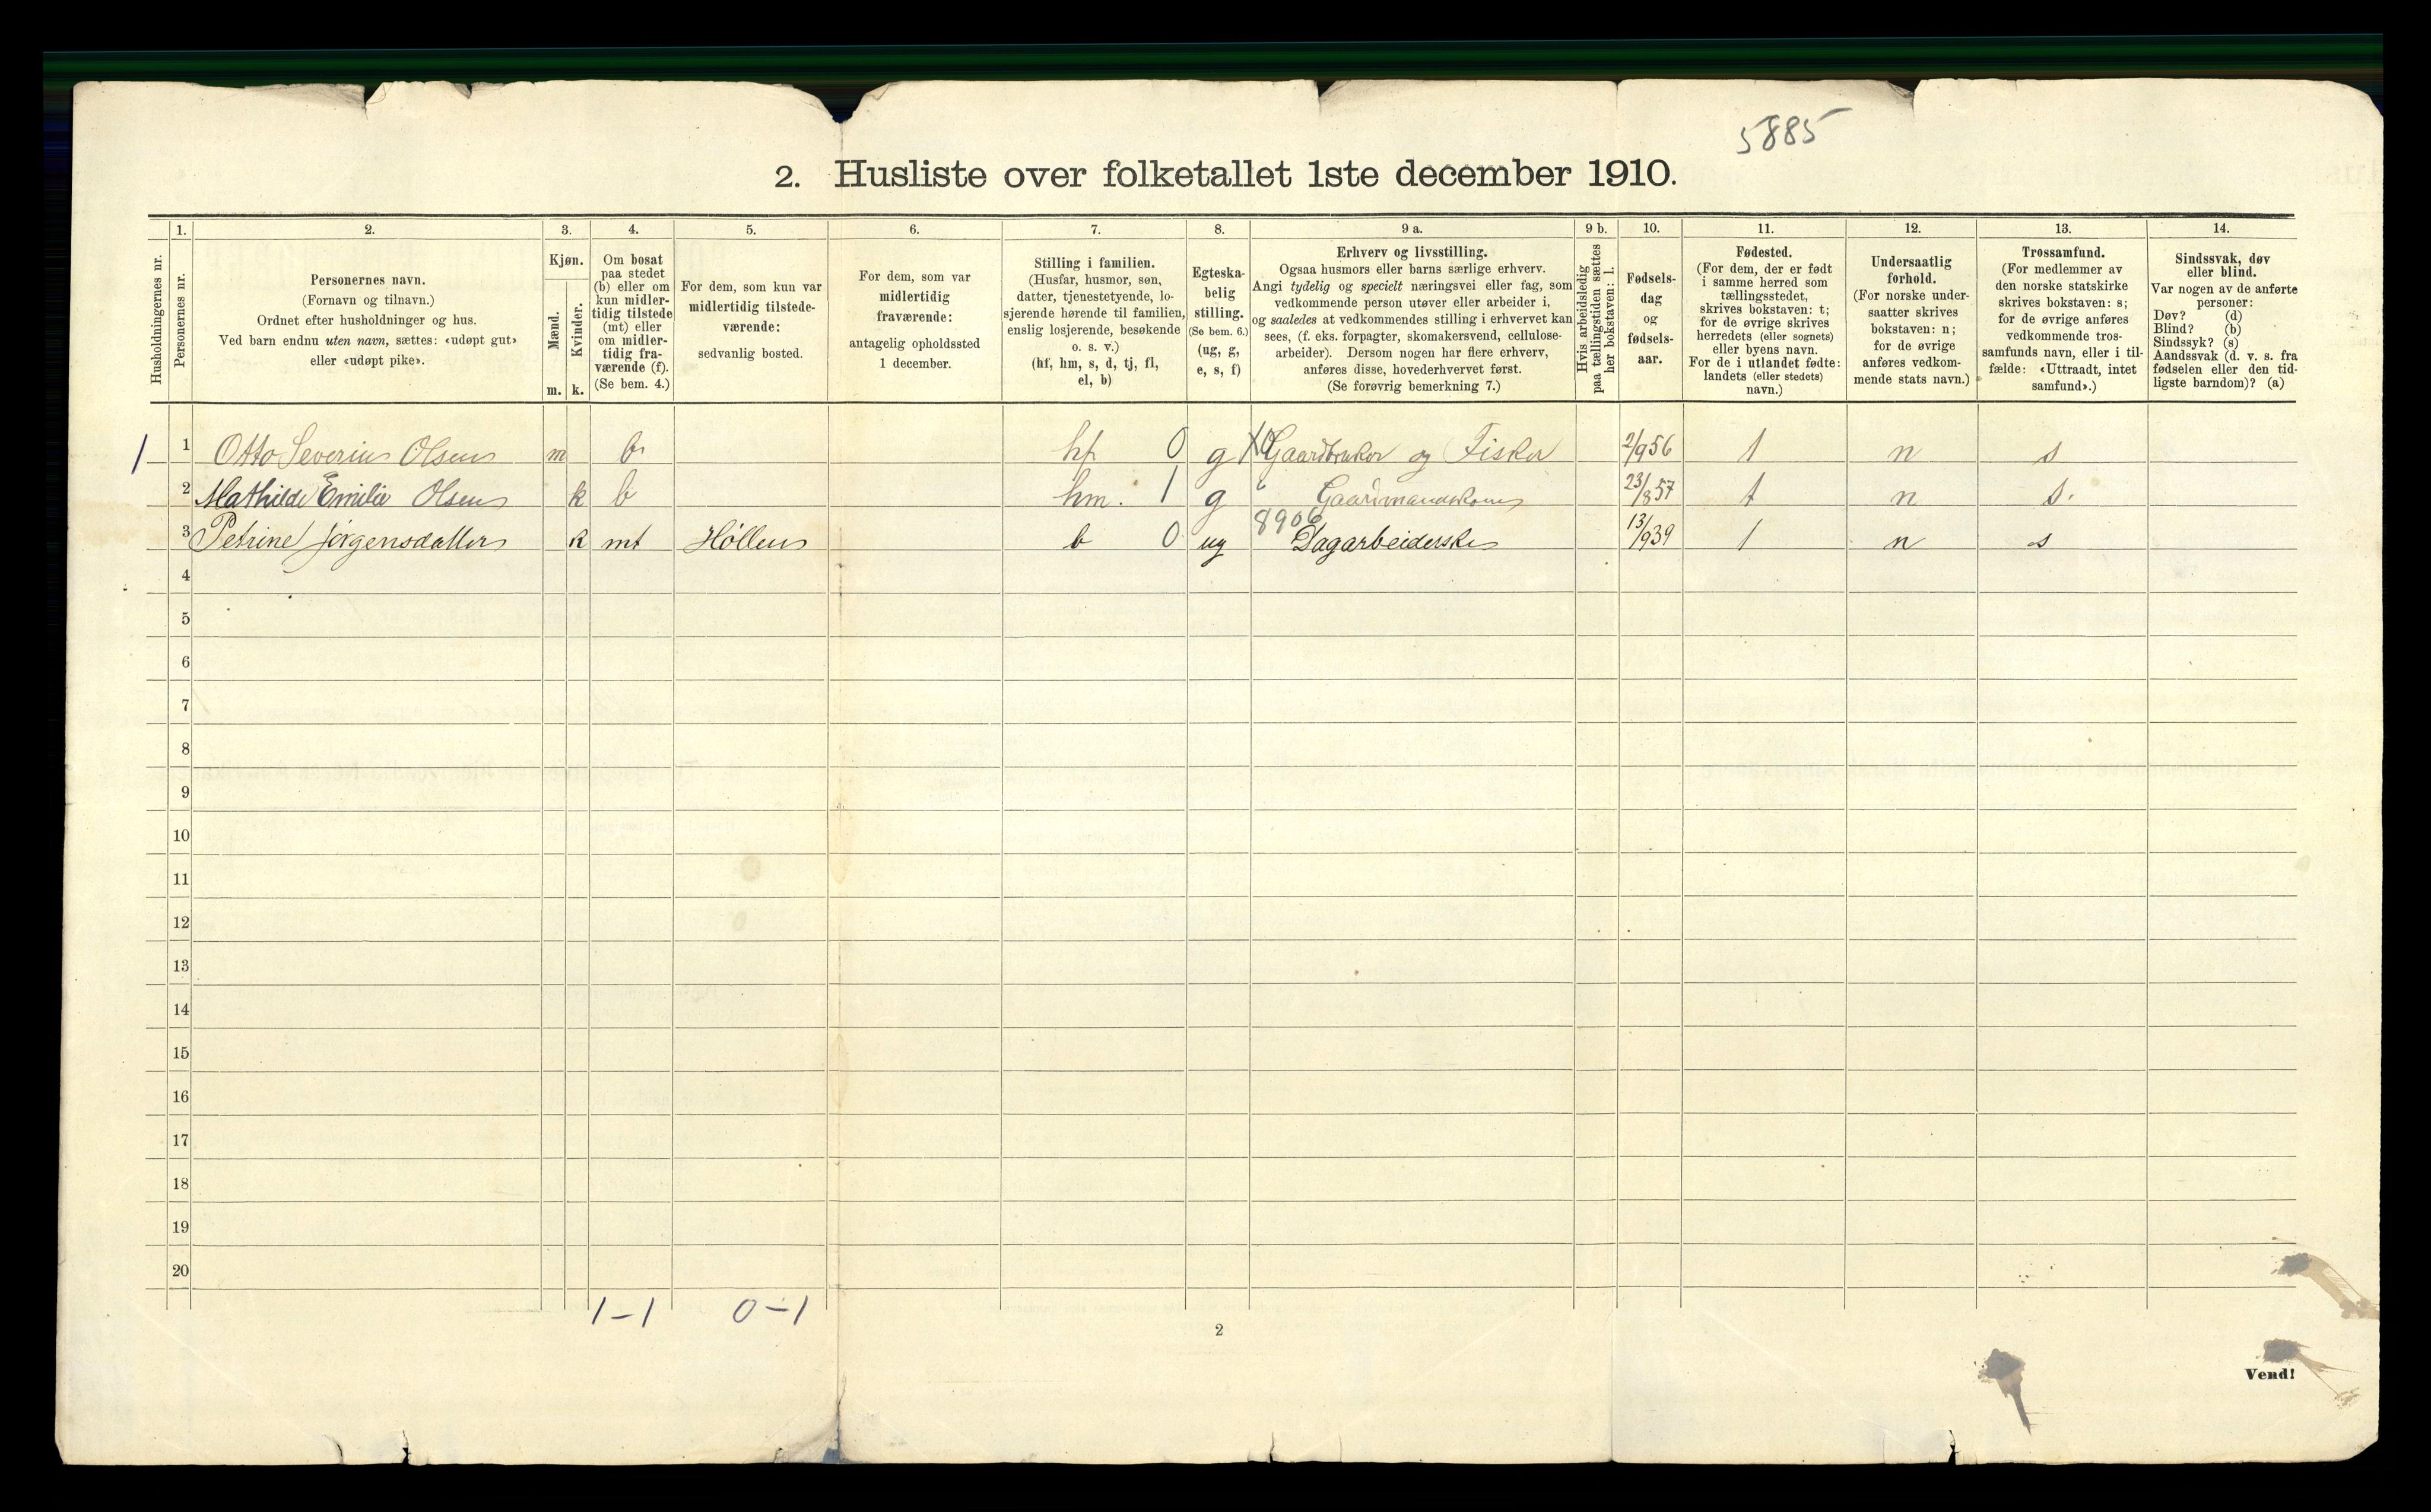 5885
2. Husliste over folketallet 1ste december 1910.
Husholdningernes nr.
1.
Personernes nr.
2.
Personernes navn.
(Fornavn og tilnavn.)
Ordnet efter husholdninger og hus.
Ved barn endnu uten navn, sættes: «udøpt gut»
eller «udøpt pike».
3.
Kjøn.
Mænd.
Kvinder.
m. k.
4.
Om bosat
paa stedet
(b) eller om
kun midler-
tidig tilstede
(mt) eller
om midler-
tidig fra-
værende (f).
(Se bem. 4.)
5.
For dem, som kun var
midlertidig tilstede-
værende:
sedvanlig bosted.
6.
For dem, som var
midlertidig
fraværende:
antagelig opholdssted
1 december.
7.
Stilling i familien.
(Husfar, husmor, søn,
datter, tjenestetyende, lo-
sjerende hørende til familien,
enslig losjerende, besøkende
o. s. v.)
(hf, hm, s, d, tj, fl,
el, b)
8.
Egteska-
belig
stilling.
(Se bem. 6.)
(ug, g,
e, s, f)
9 a.
Erhverv og livsstilling.
Ogsaa husmors eller barns særlige erhverv.
Angi tydelig og specielt næringsvei eller fag, som
vedkommende person utøver eller arbeider i,
og saaledes at vedkommendes stilling i erhvervet kan
sees, (f. eks. forpagter, skomakersvend, cellulose-
arbeider). Dersom nogen har flere erhverv,
anføres disse, hovederhvervet først.
(Se forøvrig bemerkning 7.)
9 b.
Hvis arbeidsledig
paa tællingstiden sættes
her bokstaven: l.
10.
Fødsels-
dag
og
fødsels-
aar.
11.
Fødested.
(For dem, der er født
i samme herred som
tællingsstedet,
skrives bokstaven: t;
for de øvrige skrives
herredets (eller sognets)
eller byens navn.
For de i utlandet fødte:
landets (eller stedets)
navn.)
12.
Undersaatlig
forhold.
(For norske under-
saatter skrives
bokstaven: n;
for de øvrige
anføres vedkom-
mende stats navn.)
13.
Trossamfund.
(For medlemmer av
den norske statskirke
skrives bokstaven: s;
for de øvrige anføres
vedkommende tros-
samfunds navn, eller i til-
fælde: «Uttraadt, intet
samfund».)
14.
Sindssvak, døv
eller blind.
Var nogen av de anførte
personer:
Døv? (d)
Blind? (b)
Sindssyk? (s)
Aandssvak (d. v. s. fra
fødselen eller den tid-
ligste barndom)? (a)
1 1 Otto Severin Olsen m b hf 0 g Gaardbruker og Fisker 2/9 56 t n s
2 Mathilde Emilie Olsen k b hm. 1 g Gaardmandskone 23/8 57 t n s.
8906
3 Petrine Jørgensdatter k mt Høllen b 0 ug Dagarbeiderske 13/9 39 t n s
4
5
6
7
8
9
10
11
12
13
14
15
16
17
18
19
20
1-1 0-1
2
Vend!